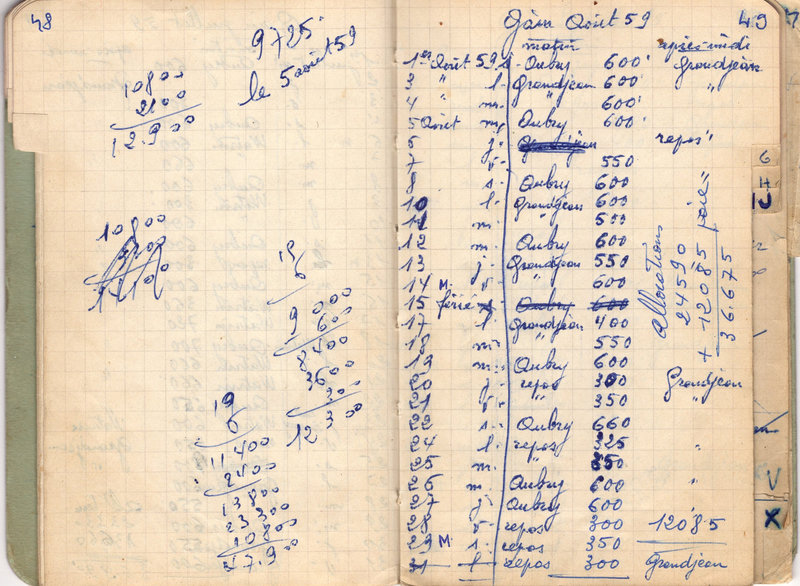 48
9725
le 5 août 59
10800
2100
12.900
10800
19
6
19 000
600
8400
3600
300
12 300
19
6
11 400
2400
13 800
23 300
10 800
47.900
Août 59
49
matin
après-midi
1er Août 59 s. Aubry 600 Grandjean
3 l. Grandjean 600 "
4 " m. " 600
5 Août m. Aubry 600
j. repos
7 v. 550
s. Aubry 600
10 l. Grandjean 600
11 m. " 500
12 m. Aubry 600
13 j. Grandjean 550
14 M. v. 600
15 férié s. Aubry 600
17 l. Grandjean 400
18 m. " 550
m. Aubry 600
j. repos 300 Grandjean
v. " 350 "
22 s. Aubry 660
24 l. repos 325
25 m. 350 "
26 m. Aubry 600 "
27 j. Aubry 600
28 v. repos 300 12085
29 M. s. repos 350
31 l repos 300 Grandjean
Allocations
24590
+ 12085 paie
36.675
6
H
J
V
X